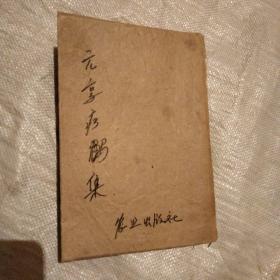 元享疗馬集
农业出版社